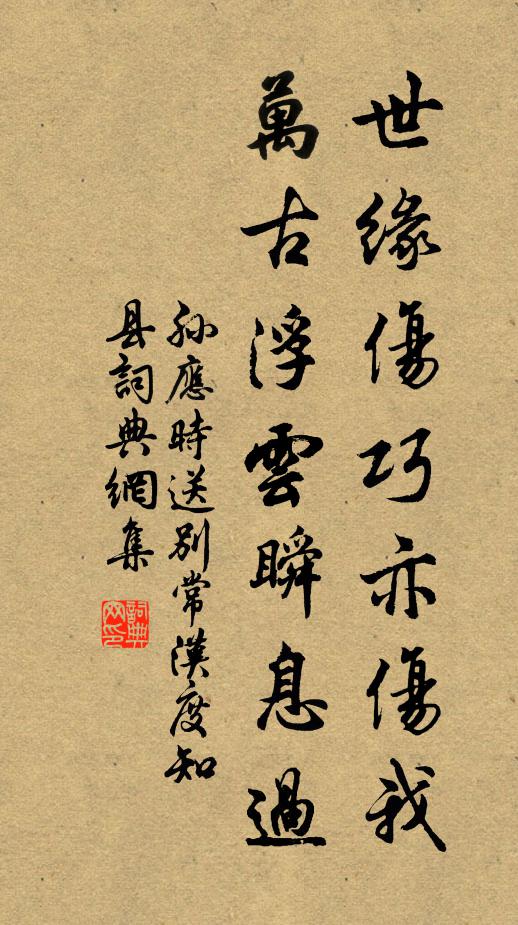 世緣傷巧亦傷我
萬古浮雲瞬息過
孙應時送别常漢度知
县詞典網集
詞典网印